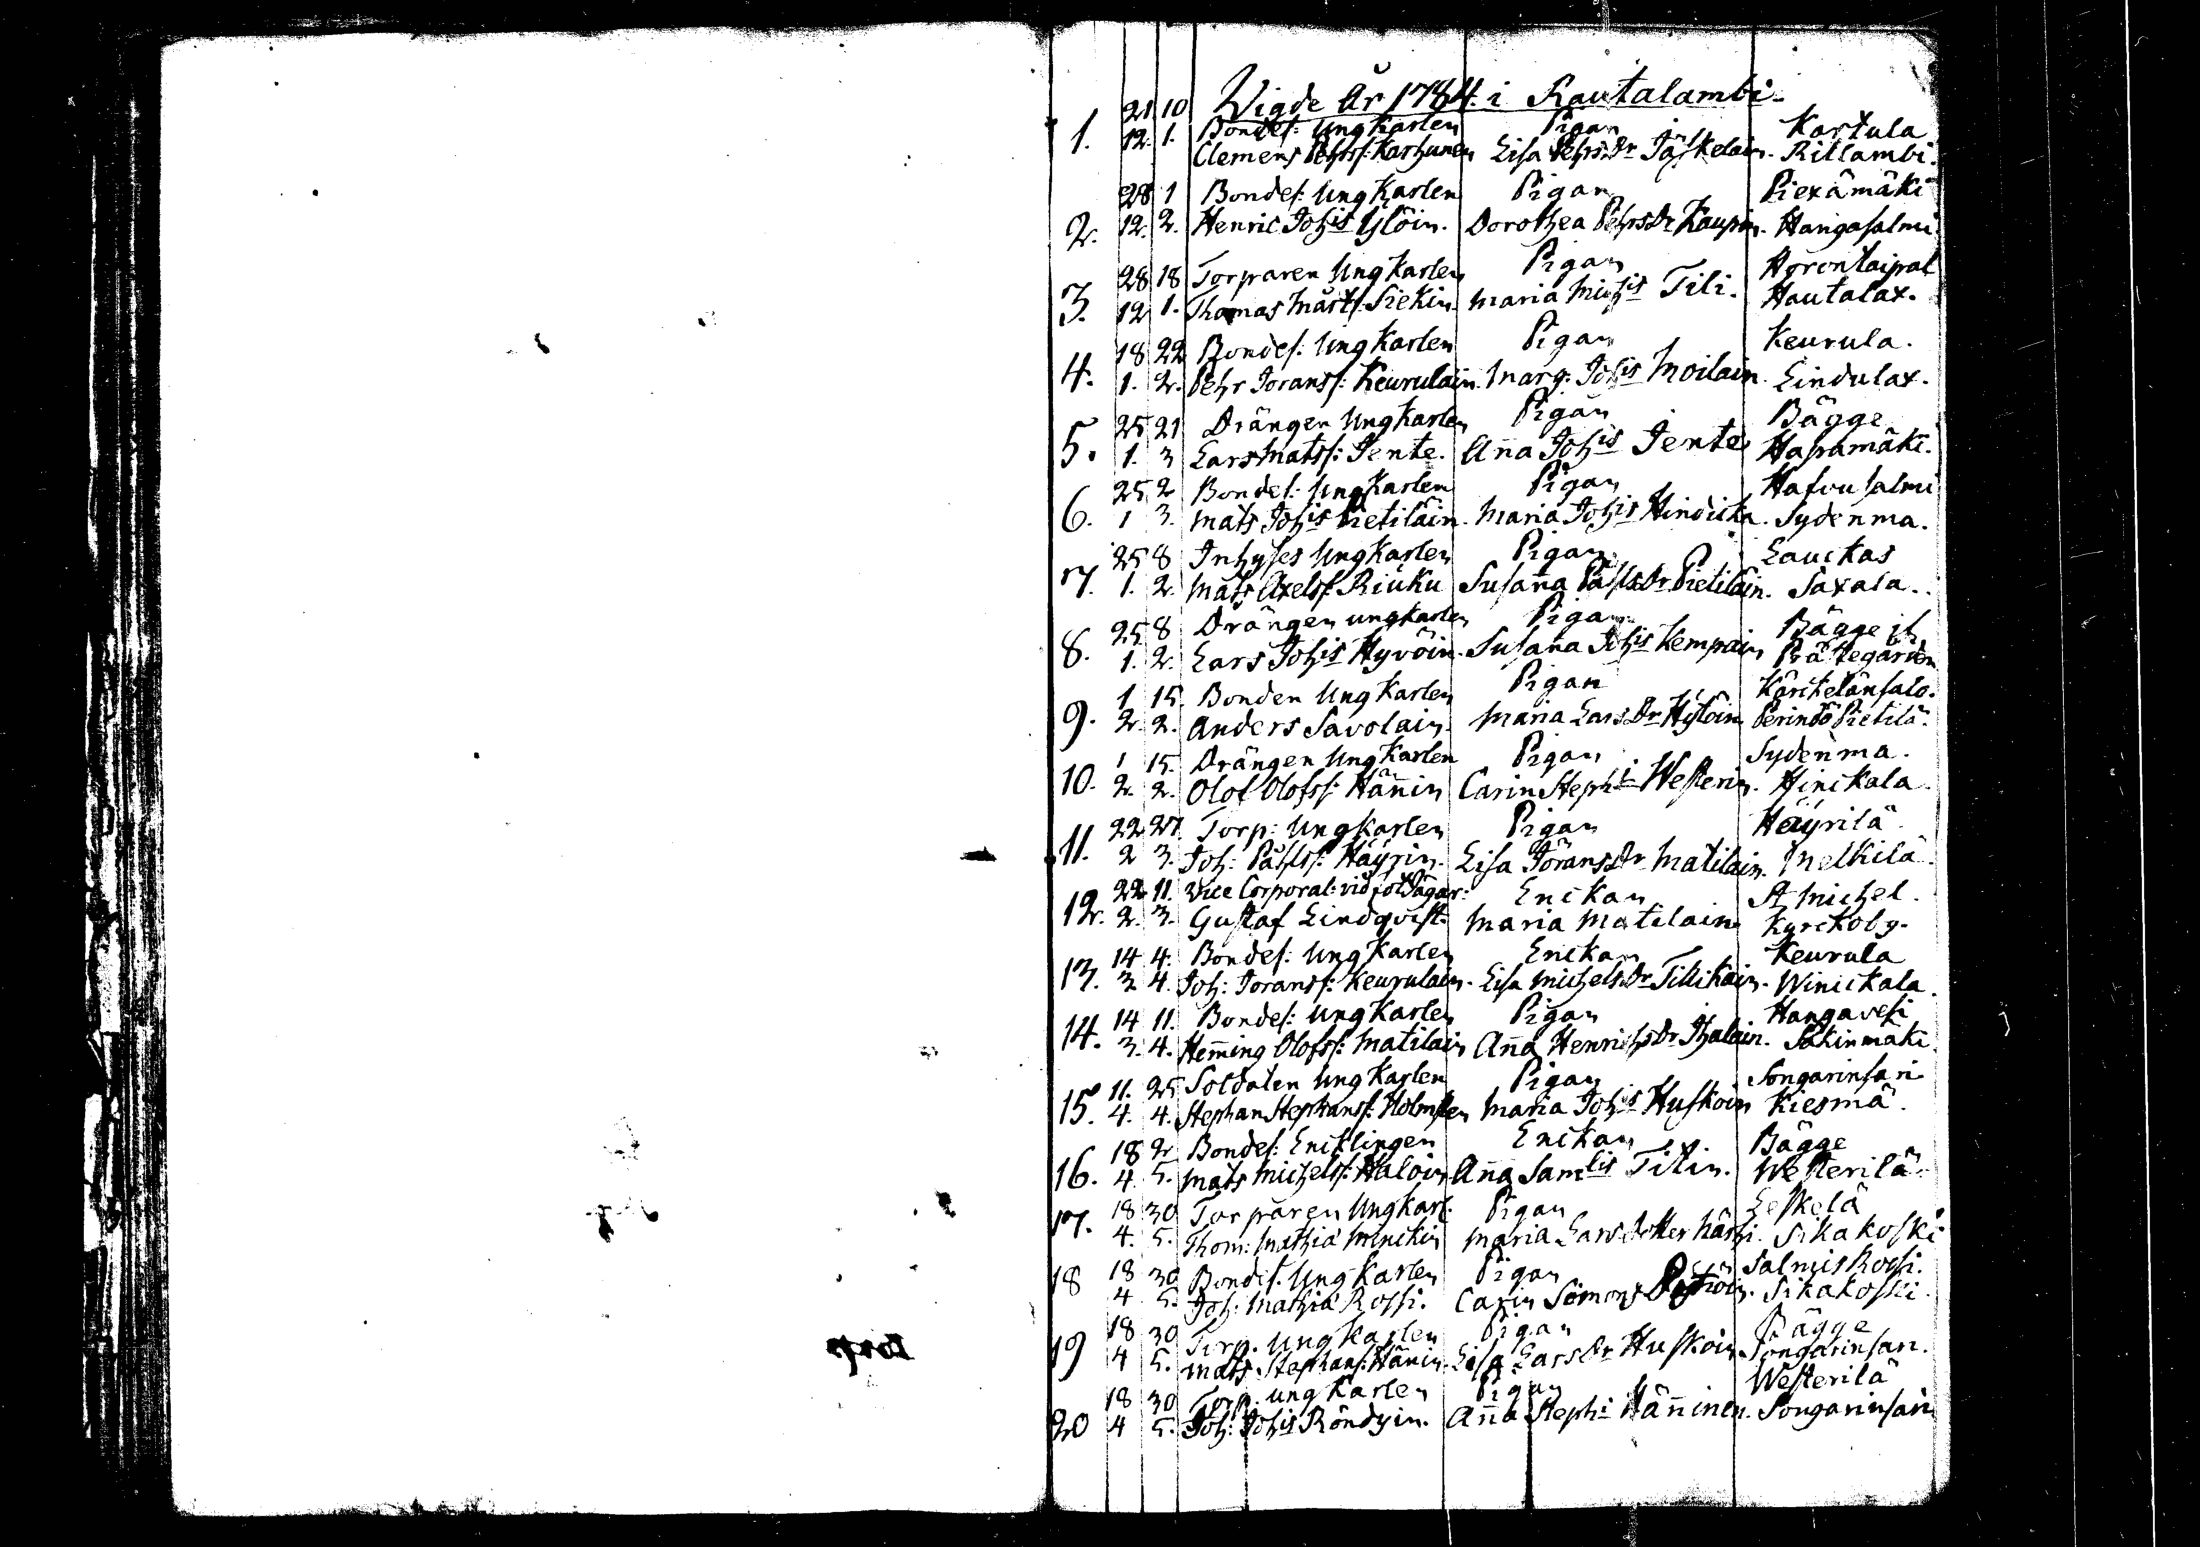 Vigde År 1784. i Rautalambi.
21 10 Bondes: Ungkarlen Pigan Kartula
1. 12. 1. Clemens Pehrss: Karhunen Lisa Pehrs Dr Jäskelain. Rillambi.
28 1 Bondes: Ungkarlen Pigan Piexämäki
2. 12. 2. Henric Johis Ylöin. Dorothea Pehrs Dr Kaupin. Hangasalmi
28 18 Torparen Ungkarlen Pigan Horontaipal
3. 12 1. Thomas Mårts: Siekin. Maria Michis Tili. Hautalax.
18 22 Bondes: Ungkarlen Pigan Keurula.
4. 1. 2. Pehr Jorans: Keurulain. Marg: Johis Moilain. Lindulax.
25 21 Drängen Ungkarlen Pigan Bägge
5. 1. 3 Lars Matss: Jente. Anna Johis Jente Hapamäki.
25 2 Bondes: Ungkarlen Pigan Hafvusalmi
6. 1 3. Mats Johis Pietiläin. Maria Johis Hindicka. Sydenma.
25 8 Inhyses Ungkarlen Pigan Lauckas
7. 1. 2. Mats Axelss: Riuku Susanna Påfls Dr Pietiläin. Saxala.
25 8 Drängen ungkarlen Pigan Bägge i
8. 1. 2. Lars Johis Hyvöin. Susanna Johis Kempain Prästegården
1 15. Bonden Ungkarlen Pigan Kärckelänsalo.
9. 2. 2. Anders Savolain. Maria Lars Dr Hylöin Perindö Pietilä.
1 15. Drängen Ungkarlen Pigan Sydenma.
10. 2. 2. Olof Olofss: Hännin Carin Steph: Westerin. Hinckala
22 27. Torp: Ungkarlen Pigan Häyrilä
11. 2 3. Joh: Påfls: Häyrin. Lisa Jörans Dr Matilain. Melkilä.
22 11. Vice Corporal: vid Enckan St Michel.
12. 2. 3. Gustaf Lindqvist. Maria Matilain Kyrckoby.
14 4. Bondes: Ungkarlen Enckan Keurula
13. 3 4. Joh: Jorans: Keurulain. Lisa Michels Dr Tillikain. Winickala.
14 11. Bondes: Ungkarlen Pigan Hangavesi
14. 3. 4. Hemming Olofss: Matilain Anna Henrichs Dr Ihalain. Säkinmäki.
11. 25 Soldaten Ungkarlen Pigan Songarinsari
15. 4. 4. Stephan Stephans: Holmsten Maria Johis Huskoin Kiesmä.
18 2 Bondes: Encklingen Enckan Bägge
16. 4. 5. Mats Michels: Haloin Anna Samlis Tilin. Westerilä.
18 30 Torparen Ungkarl. Pigan Leskelä
17. 4. 5. Thom: Mathiæ Minckin Maria Lars dotter Sikakoski
18 30 Bondes. Ungkarlen Pigan Salmis Rossi.
18 4 5. Joh: Mathiæ Rossi. Carin Simons Sikakoski.
18 30 Torp. Ungkarlen Pigan Bägge
19 4 5. Mats Stephans: Hänin. Lisa Lars Dr Huskoin Songarinsari.
18 30 Torp. ungkarlen Pigan Westerilä
20 4 5. Joh: Johis Röndyin. Anna Steph: Hänninen. Songarinsari